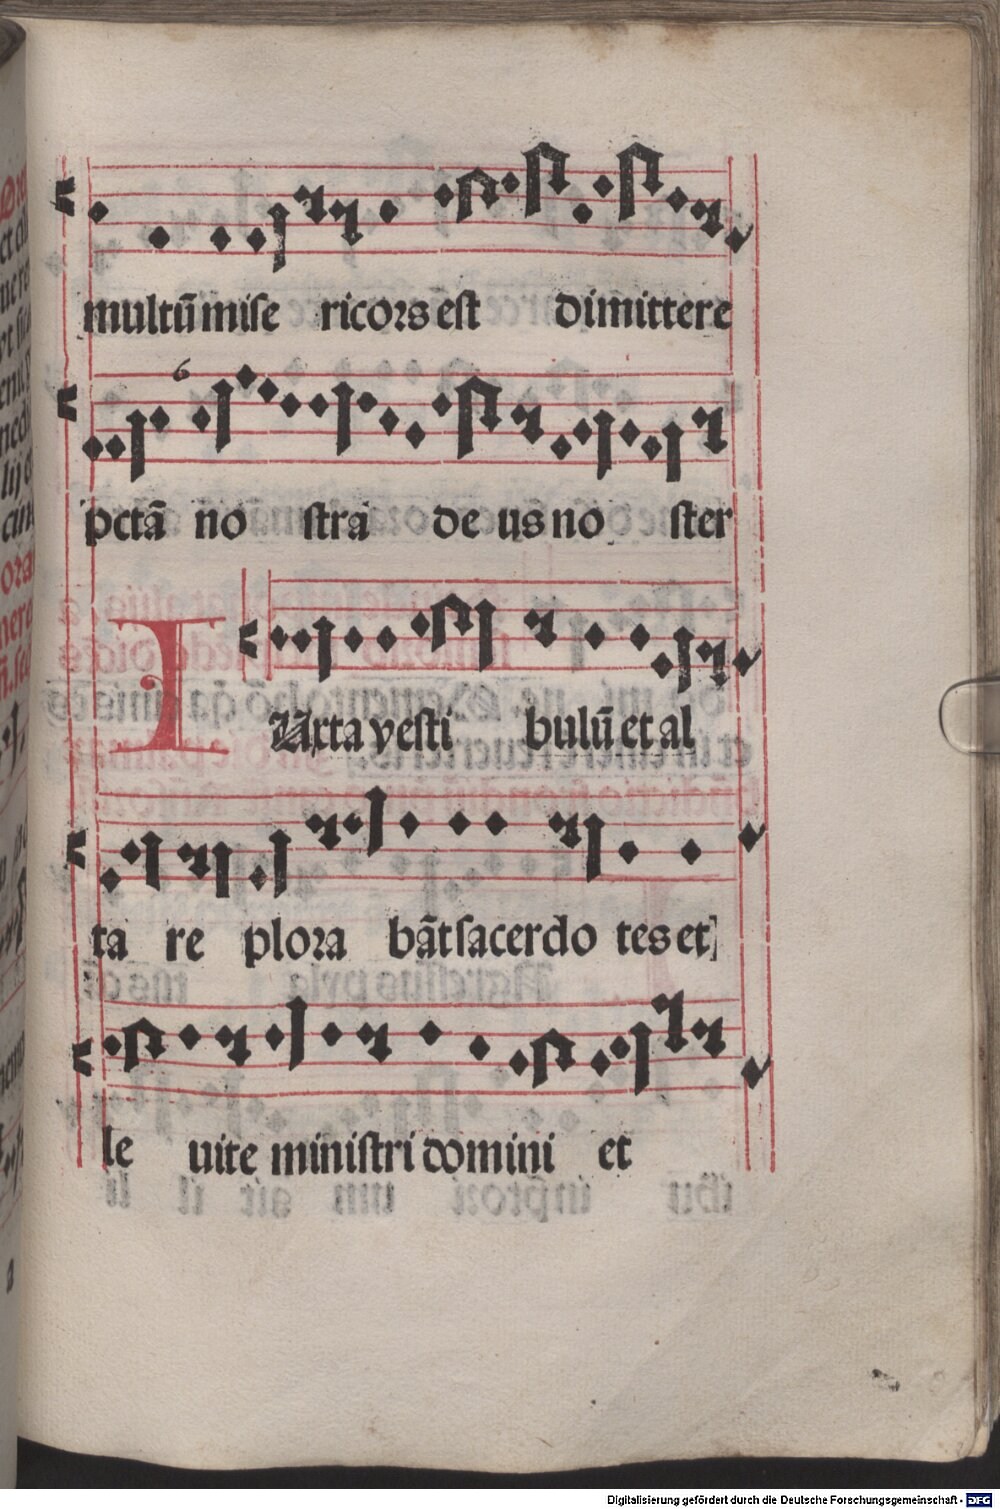 multū miſe ricors eſt dimittere
pctā no ſtra de us no ſter
IUxta veſti bulū et al
ta re plora bāt ſacerdo tes et
le uite miniſtri domini et
Digitalisierung gefördert durch die Deutsche Forschungsgemeinschaft - DFG